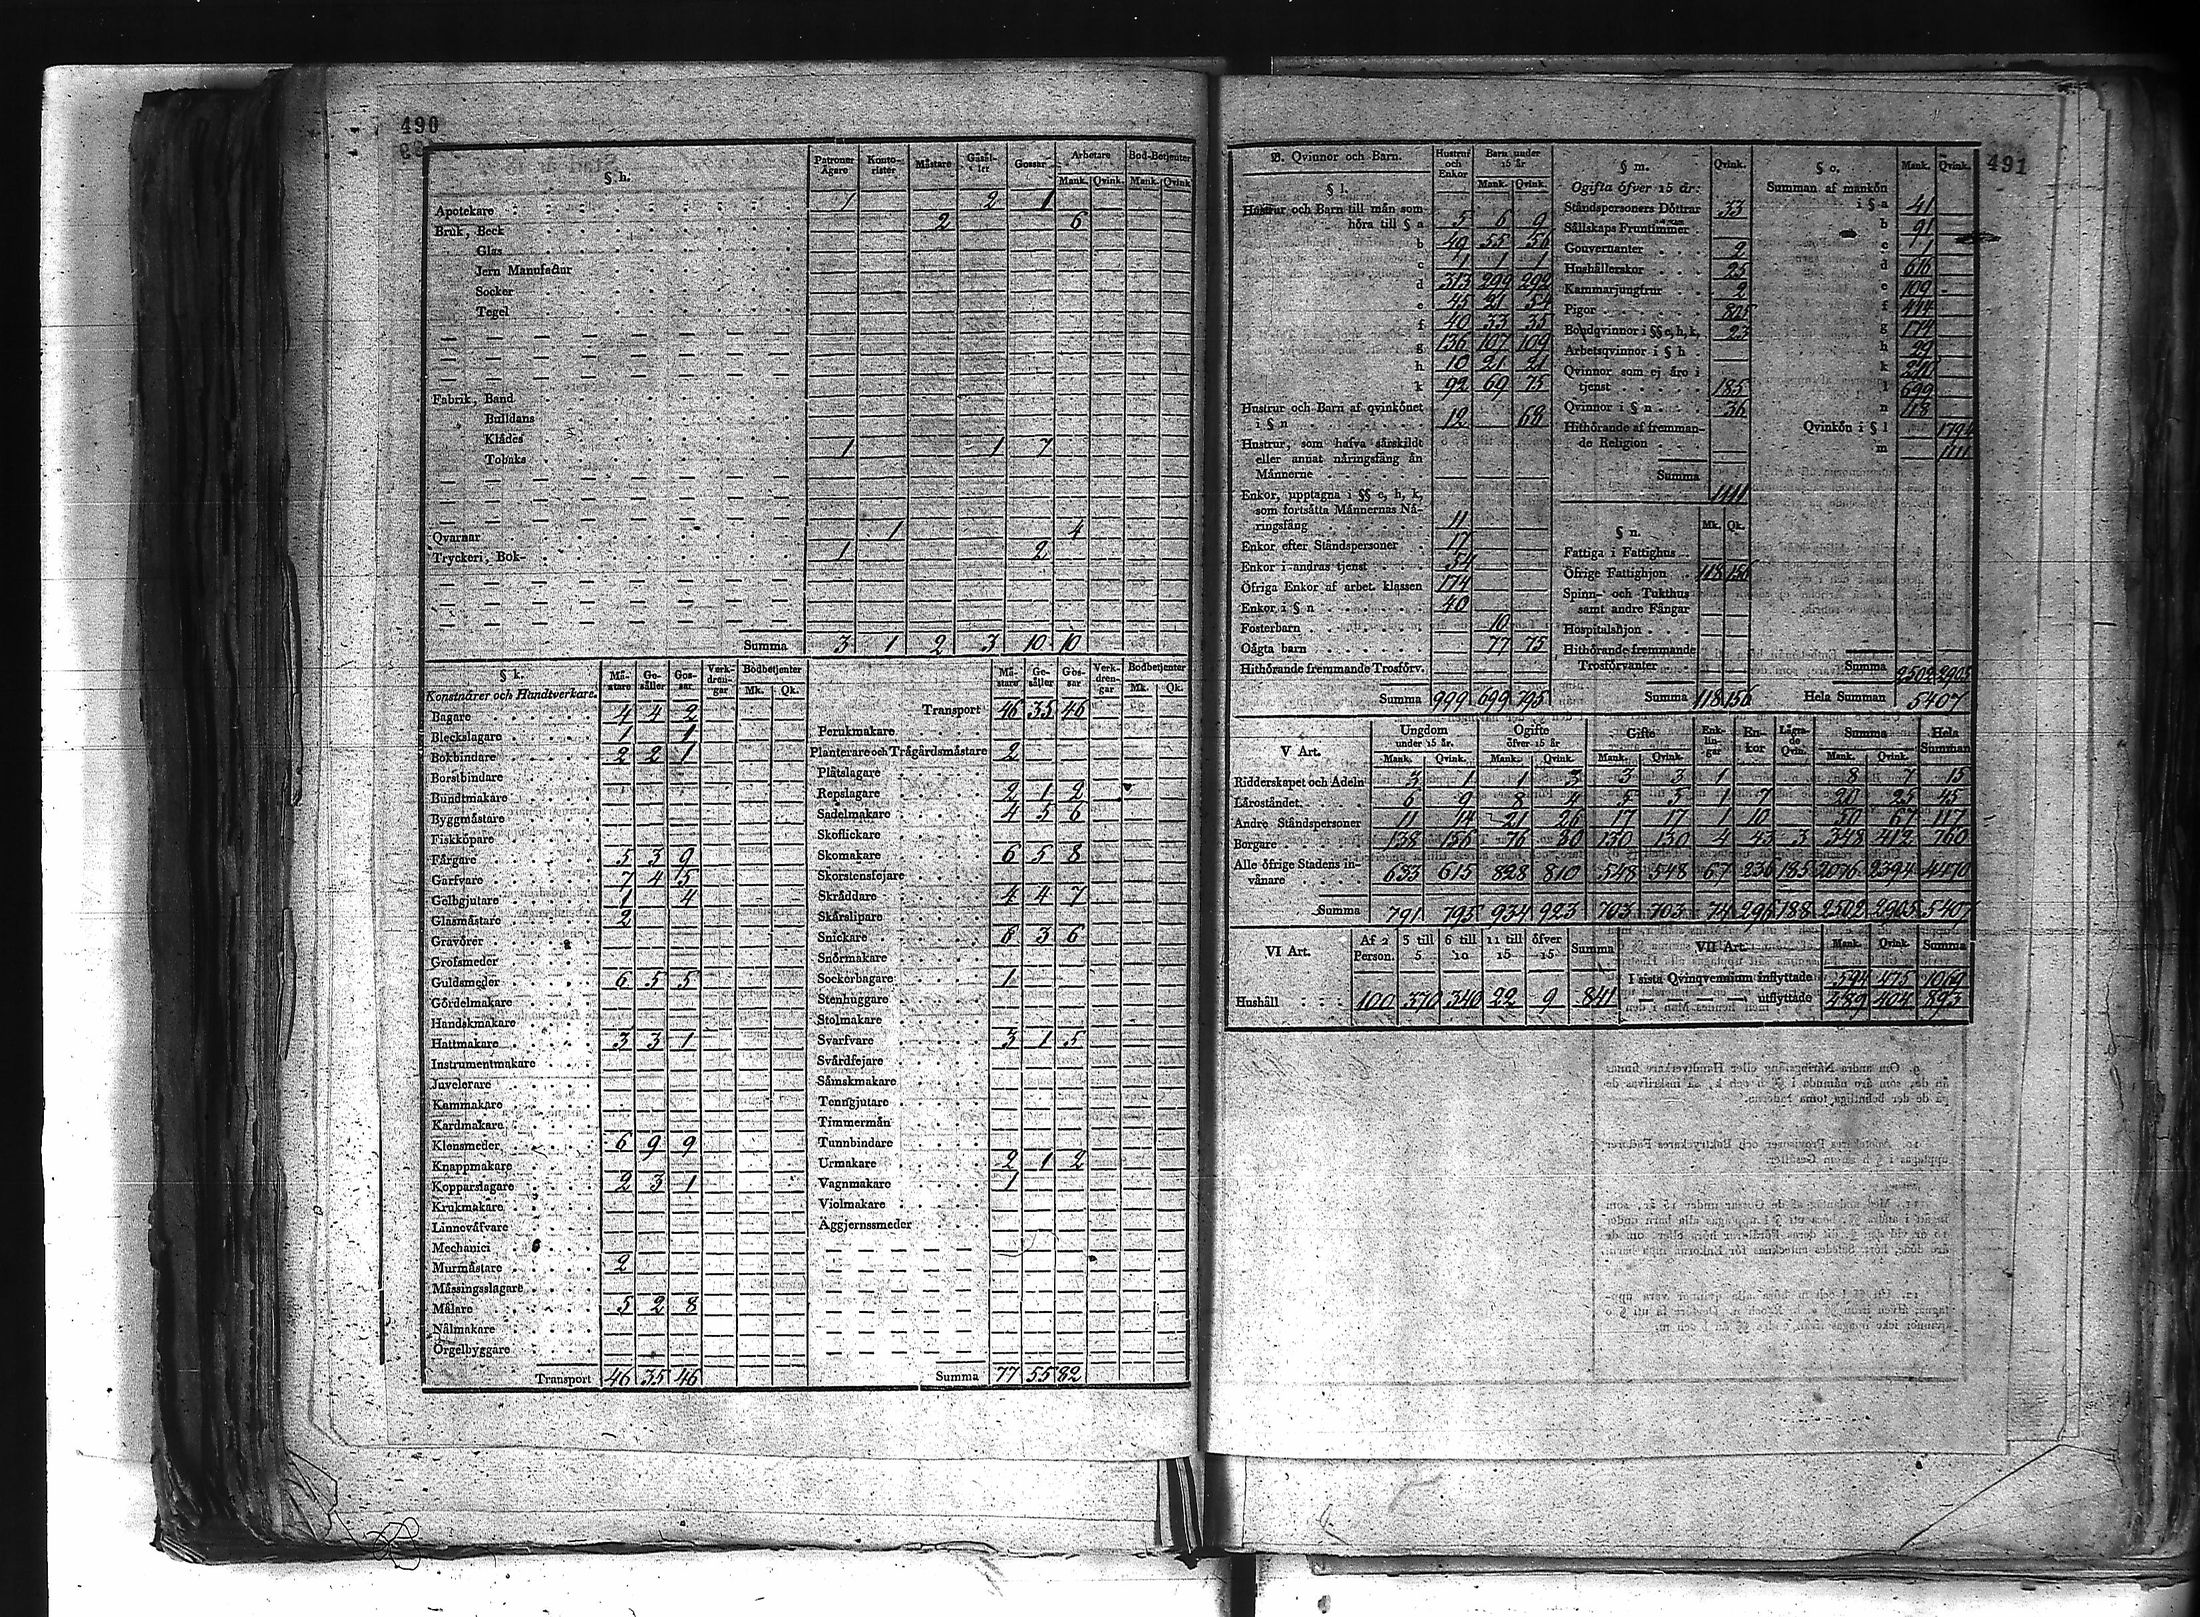 490
§ h.
Patroner Ägare Konto-rister Mästare Gesäl-ler Gossar Arbetare Bod-Betjenter
Mank. Qvink. Mank. Qvink
Apotekare 1 2 1
Bruk, Beck 2 6
Glas
Jern Manufactur
Socker
Tegel
Fabrik, Band
Bulldans
Klädes
Tobaks 1 1 7
Qvarnar 1 4
Tryckeri, Bok- 1 2
Summa 3 1 2 3 10 10
§ k.
Konstnärer och Handtverkare.
Mä-stare Ge-säller Gos-sar Verk-dren-gar Bodbetjenter
Mk. Qk.
Bagare 4 4 2
Bleckslagare 1 1
Bokbindare 2 2 1
Borstbindare
Bundtmakare
Byggmästare
Fiskköpare
Färgare 5 3 9
Garfvare 7 4 5
Gelbgjutare 1 4
Glasmästare 2
Gravörer
Grofsmeder
Guldsmeder 6 5 5
Gördelmakare
Handskmakare
Hattmakare 3 3 1
Instrumentmakare
Juvelerare
Kammakare
Kardmakare
Klensmeder 6 9 9
Knappmakare
Kopparslagare 2 3 1
Krukmakare
Linneväfvare
Mechanici
Murmästare 2
Mässingsslagare
Målare 5 2 8
Nålmakare
Orgelbyggare
Transport 46 35 46
Mä-stare Ge-säller Gos-sar Verk-dren-gar Bodbetjenter
Mk. Qk.
Transport 46 35 46
Perukmakare
Planterare och Trägårdsmästare 2
Plåtslagare
Repslagare 2 1 2
Sadelmakare 4 5 6
Skoflickare
Skomakare 6 5 8
Skorstensfejare
Skräddare 4 4 7
Skärslipare
Snickare 6 3 6
Snörmakare
Sockerbagare 1
Stenhuggare
Stolmakare
Svarfvare 3 1 5
Svärdfejare
Sämskmakare
Tenngjutare
Timmermän
Tunnbindare
Urmakare 2 1 2
Vagnmakare 1
Violmakare
Äggjernssmeder
Summa 77 55 82
491
B. Qvinnor och Barn.
Hustrur och Enkor Barn under 15 år
Mank. Qvink.
§ l.
Hustrur och Barn till män som
höra till § a 5 6 9
b 49 55 56
c 1 1 1
d 313 299 292
e 45 21 54
f 40 33 35
g 136 107 109
h 10 21 21
k 92 69 75
Hustrur och Barn af qvinkönet
i § n 12 68
Hustrur, som hafva särskildt
eller annat näringsfång än
Männerne
Enkor, upptagna i §§ e, h, k,
som fortsätta Männernas Nä-
ringsfång 11
Enkor efter Ståndspersoner 17
Enkor i andras tjenst 54
Öfriga Enkor af arbet. klassen 174
Enkor i § n 40
Fosterbarn 10
Oägta barn 77 75
Hithörande fremmande Trosförv.
Summa 999 699 795
§ m. Qvink.
Ogifta öfver 15 år:
Ståndspersoners Döttrar 33
Sällskaps Fruntimmer
Gouvernanter 2
Hushållerskor 25
Kammarjungfrur 2
Pigor 805
Bodqvinnor i §§ e, h, k, 23
Arbetsqvinnor i § h
Qvinnor som ej äro i
tjenst 185
Qvinnor i § n 36
Hithörande af fremman-
de Religion
Summa 1111
§ n. Mk. Qk.
Fattiga i Fattighus
Öfrige Fattighjon 118 156
Spinn- och Tukthus
samt andre Fångar
Hospitalshjon
Hithörande fremmande
Trosförvanter
Summa 118 156
§ o. Mank. Qvink.
Summan af mankön
i § a 41
b 91
c 1
d 616
e 109
f 444
g 174
h 29
k
l 699
n 118
Qvinkön i § l 1794
m 1111
Summa 2502 2905
Hela Summan 5407
V Art.
Ungdom under 15 år. Ogifte öfver 15 år Gifte Enk-lin-gar En-kor Lägra-de Qvin. Summa Hela Summan
Mank. Qvink. Mank. Qvink. Mank. Qvink. Mank. Qvink.
Ridderskapet och Adeln 3 1 1 3 3 3 1 8 7 15
Läroståndet 6 9 8 4 5 5 1 7 20 25 45
Andre Ståndspersoner 11 14 21 26 17 17 1 10 50 67 117
Borgare 138 156 76 80 130 130 4 43 3 348 412 760
Alle öfrige Stadens in-
vånare 633 615 828 810 548 548 67 236 185 2076 2394 4470
Summa 791 795 934 923 703 703 74 296 188 2502 2905 5407
VI Art.
Af 2 Person. 3 till 5 6 till 10 11 till 15 öfver 15 Summa
Hushåll 100 370 340 22 9 841
VII Art. Mank. Qvink. Summa
I sista Qvinqvennium inflyttade 594 475 1069
utflyttade 489 404 893